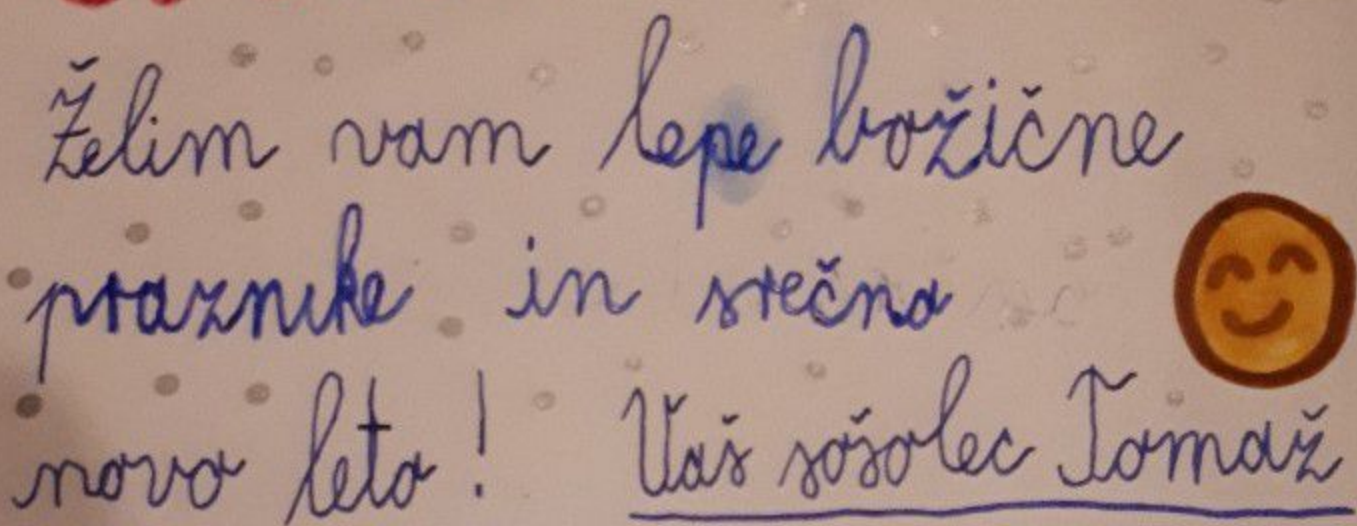 Želim vam lepe božične
praznike in srečno
novo leto! Vaš sošolec Tomaž